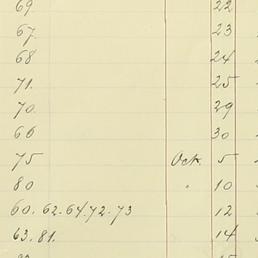 69 22
67. 23
68 24
71. 25
70. 29
66 30
75 Oct. 5
80 " 10
60. 62. 64. 72. 73 12
63. 81. 14